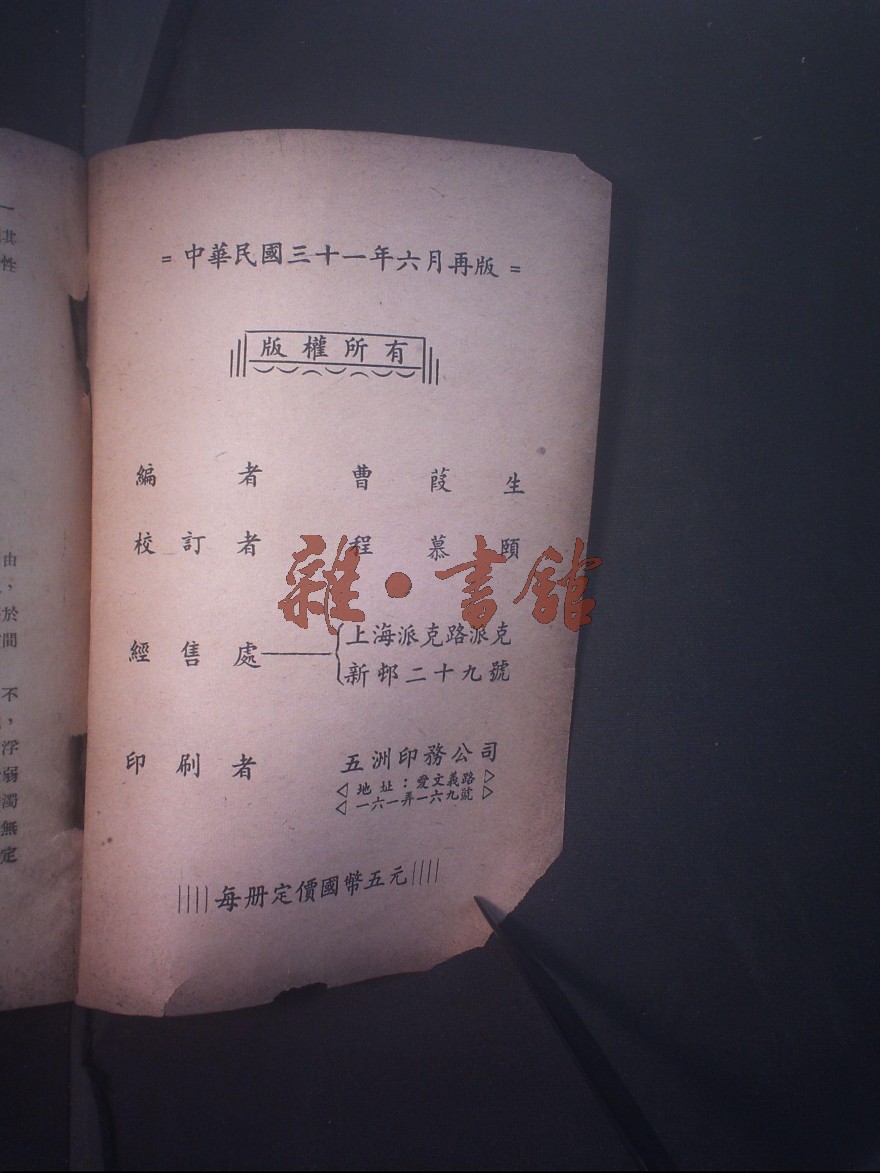 =中華民國三十一年六月再版=
版權所有
編者 曹葭生
校訂者 程慕頤
雜·書館
經售處——上海派克路派克
新邨二十九號
印刷者 五洲印務公司
地址：愛文義路
一六一弄一六九號
每册定價國幣五元
一
其
性
由
，
於
間
不
，
浮
弱
濁
無
定